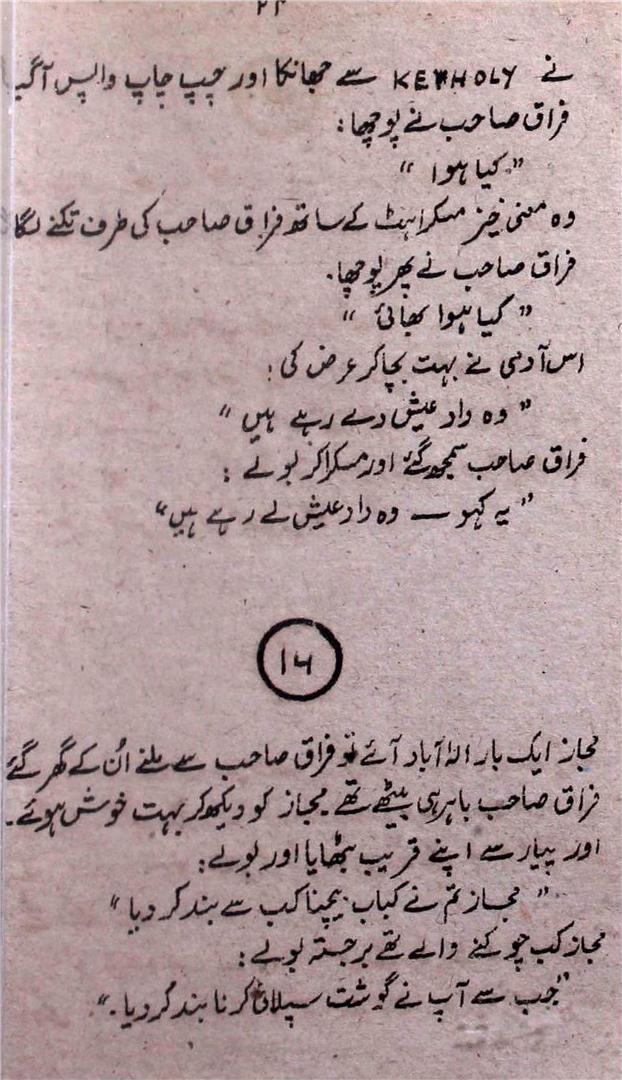 نے KEYHOLY سے جھانکا اور چپ چاپ واپس آگیا
فراق صاحب نے پوچھا:
"کیا ہوا"
وہ معنی خیز مسکراہٹ کے ساتھ فراق صاحب کی طرف تکنے لگا
فراق صاحب نے پھر پوچھا۔
"کیا ہوا بھائی"
اس آدمی نے بہت بچا کر عرض کی:
"وہ داد عیش دے رہے ہیں"
فراق صاحب سمجھ گئے اور مسکرا کر بولے:
"یہ کہو — وہ داد عیش لے رہے ہیں"
۱۶
مجاز ایک بار الہ آباد آئے تو فراق صاحب سے ملنے اُن کے گھر گئے
فراق صاحب باہر ہی بیٹھے تھے مجاز کو دیکھ کر بہت خوش ہوئے۔
اور پیار سے اپنے قریب بٹھایا اور بولے:
"مجاز تم نے کباب بیچنا کب سے بند کر دیا"
مجاز کب چوکنے والے تھے برجستہ بولے:
"جب سے آپ نے گوشت سپلائی کرنا بند کر دیا۔"